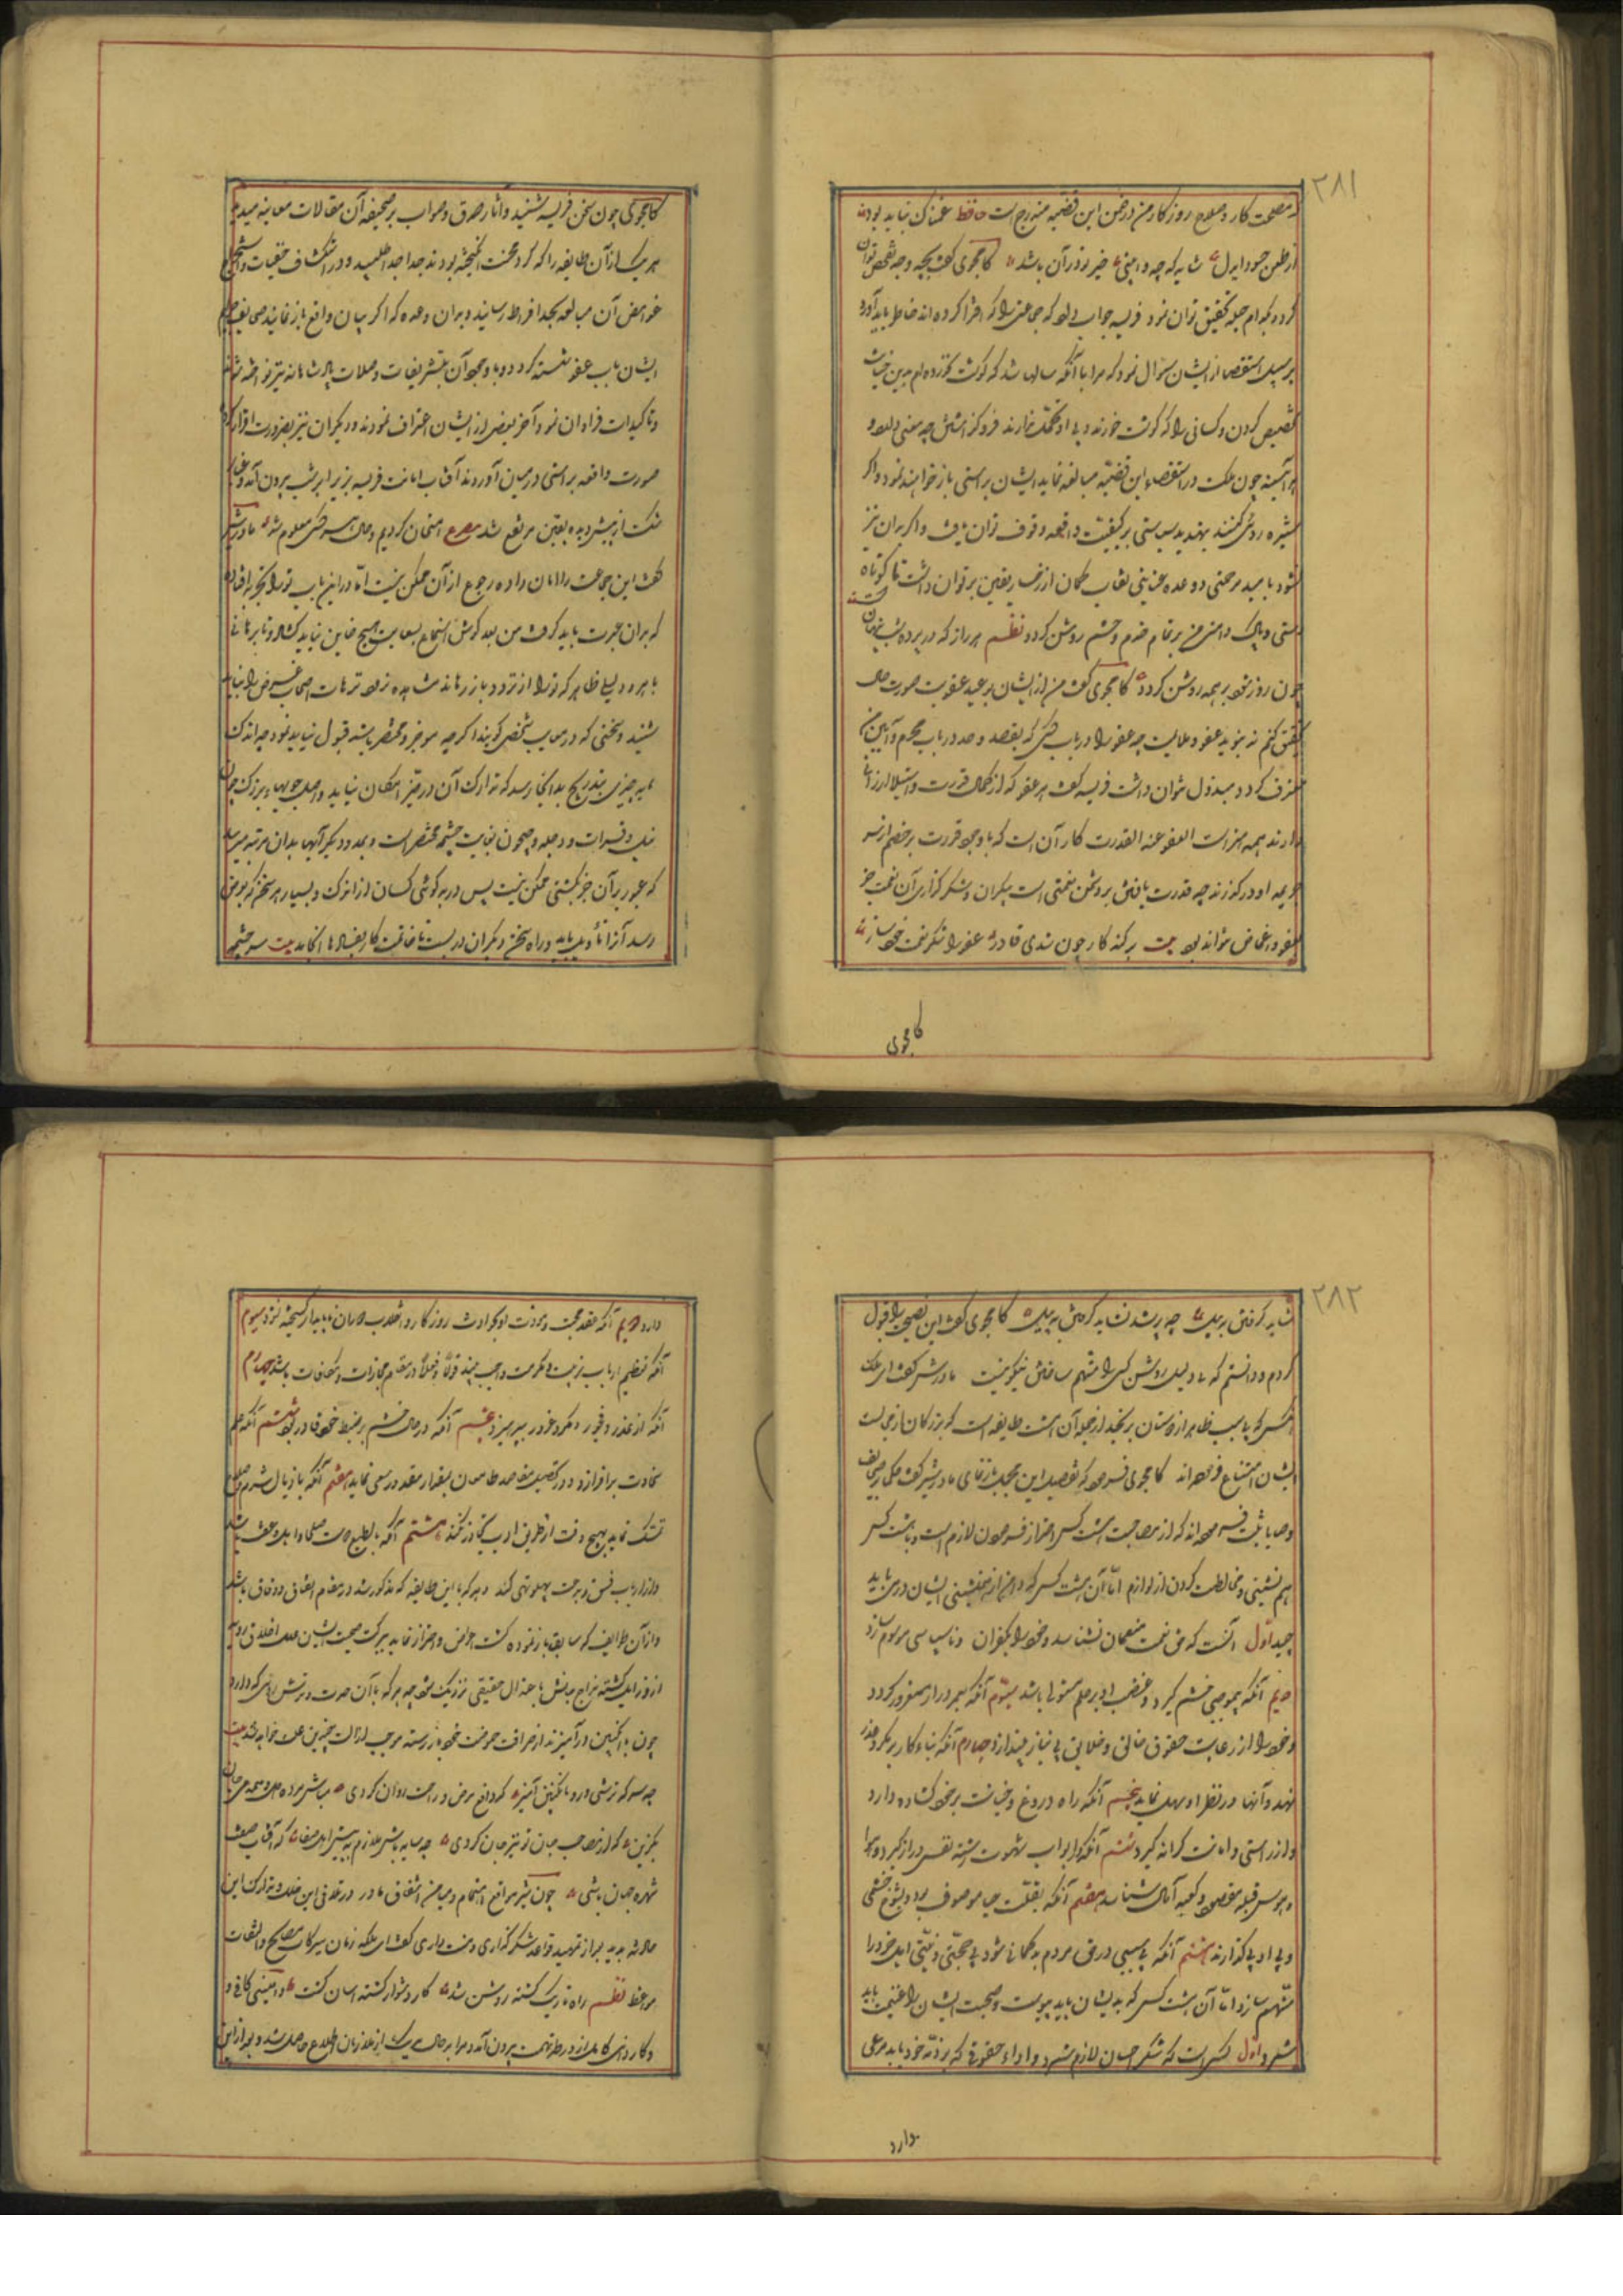 ٢٨١
مصلحت کار و صلاح روزگار من در ضمن این قضیه مندرج است حافظ غمناک نباید بود
از طعن حسود ای دل شاید که چو وابینی خیر تو در آن باشد کامجوی گفت بچه وجه تفحص توان
کرد و بکدام حیله تحقیق توان نمود فریسه جواب داد که جماعتی را که افترا کرده اند حاضر باید آورد
بر سبیل استقصا از ایشان سؤال نمود که مرا با آنکه سالها شد که گوشت نخورده ام بدین خیانت
تخصیص کردن و کسانی را که گوشت خورند و بی او نگذارند فرو گذاشتن چه معنی دارد و
هر آینه چون ملک در استقصاء این قضیه مبالغه نماید ایشان براستی باز خواهند نمود و اگر
ستیزه روئی کنند بتهدید سیاستی بر کیفیت واقعه وقوف توان یافت و اگر بدان نیز
نشود بامید مرحمتی و وعده عنایتی نقاب گمان از رخسار یقین بر توان داشت تا کوتاه
دستی و پاک دامنی من بر تمام خدم و حشم روشن گردد نظم هر راز که در پرده شب پنهان است
چون روز شود بر همه روشن گردد کامجوی گفت من از ایشان بوعید عقوبت صورت حال
تحقیق کنم نه بنوید عفو و ملایمت چه عفو را در باب کسی که بقصد و حسد در باب محرم و امین من
معترف گردد مبذول نتوان داشت فریسه گفت هر عفو که از کمال قدرت و استیلا ارزانی
دارند همه هنر است العفو عند القدرة کار آن است که با وجود قدرت بر خصم از سر
جریمه او در گذرند چه قدرت یافتن بر دشمن نعمتی است بیکران و شکر گزاری آن نعمت جز
بعفو و اغماض نتواند بود بیت بر گنه کار چون شدی قادر عفو را شکر نعمت خود ساز
کامجوی
کامجوی چون سخن فریسه شنید و آثار صدق و صواب بر صحیفه آن مقالات معاینه دید
هر یک از آن طایفه را که گرد فتنه انگیخته بودند جدا جدا طلبید و در استکشاف خفیات و استخراج
غوامض آن مبالغه بحد افراط رسانید و بر آن وعده که اگر بیان واقع باز نمایند صحایف جرایم
ایشان بآب عفو شسته گردد و با وجود آن بتشریفات و صلات پادشاهانه نیز نواخته شوند
و تأکیدات فراوان نمود آخر بعضی از ایشان اعتراف نمودند و دیگران نیز بضرورت اقرار کردند
صورت واقعه براستی در میان آوردند آفتاب امانت فریسه از زیر ابر شبهت برون آمد و غبار
شک از پیش دیده یقین مرتفع شد مصرع امتحان کردیم و حال هر کسی معلوم شد مادر شیر
گفت این جماعت را امان داده رجوع از آن ممکن نیست اما در این باب تو را تجربه افتاد
که بدان عبرت باید گرفت من بعد گوش استماع بسعایت هیچ خاین نباید گشاد و تا برهانی
باهر و دلیلی ظاهر که تو را از تردد باز رهاند مشاهده نرود ترهات اصحاب غرض را نباید
شنید و سخنی که در معایب شخصی گویند اگر چه موجز و مختصر باشد قبول نباید نمود چه اندک
اندک چیزی بتدریج بدانجا رسد که تدارک آن در حیّز امکان نیاید و اصل جویهاء بزرگ چون
نیل و فرات و دجله و جیحون بغایت چشمه مختصر است و بمدد دیگر آبها بدان مرتبه میرسد
که عبور بر آن جز بکشتی ممکن نیست پس در بدگوئی کسان از اندک و بسیار هر سخن که بعرض
رسد آنرا تأویل باید و راه سخن دیگران در بست تا عاقبت کار بفسادها نکشد بیت سر چشمه
٢٨٢
شاید گرفتن به بیل چو پر شد نشاید گذشتن به پیل کامجوی گفت این نصیحت را قبول
کردم و دانستم که بی دلیل روشن کسی را متهم ساختن نیکو نیست مادر شیر گفت ای ملک
آنکس که بی سبب ظاهر از دوستان برنجد از جمله آن هشت طایفه است که بزرگان از مجالست
ایشان امتناع فرموده اند کامجوی فرمود که تفصیل این مجمل باز نمای مادر شیر گفت حکما در صحایف
وصایا ثبت فرموده اند که از مصاحبت هشت کس احتراز فرمودن لازم است و با هشت کس
هم نشینی و مخالطت کردن از لوازم اما آن هشت کس که دامن از همنشینی ایشان در می باید
چید اول آنست که حق نعمت منعمان نشناسد و خود را بکفران و ناسپاسی موسوم سازد
دویم آنکه بی موجبی خشم گیرد و غضب او بر حلم مستولی باشد سیوم آنکه بعمر دراز مغرور گردد
و خود را از رعایت حقوق خالق و خلایق بی نیاز پندارد چهارم آنکه بناء کار بر مکر و غدر
نهد و آنها در نظر او سهل نماید پنجم آنکه راه دروغ و خیانت بر خود گشاده دارد
و از راستی و امانت کرانه گیرد ششم آنکه در ابواب شهوت رشته نفس دراز گیرد و هوا
و هوس قبله مقصود و کعبه آمال شناسد هفتم آنکه بقلت حیا موصوف بود و بشوخ چشمی
و بی ادبی گذارند هشتم آنکه بی سببی در حق مردم بدگمان شود بی حجتی و بینتی اهل خرد را
متهم سازد اما آن هشت کس که بدیشان باید پیوست و صحبت ایشان را غنیمت باید
شمرد اول کسی است که شکر احسان لازم شمرد و اداء حقوق که بر ذمه خود باید مرعی
دارد
دارد دویم آنکه عقد محبت و مودت او بحوادث روزگار و انقلاب دوران ناپایدار گسیخته نشود سیوم
آنکه تعظیم ارباب تربیت و مکرمت واجب بیند قولاً و فعلاً در مقام مجازات و مکافات باشد چهارم
آنکه از غدر و فجور و مکر و غرور بپرهیزد پنجم آنکه در حال خشم بر ضبط خود قادر بود ششم آنکه علم
سخاوت بر افرازد و در تحصیل مقاصد طامعان بمقدار مقدور سعی نماید هفتم آنکه باذیال شرم و صلاح
تمسک نماید بهیچ وقت از طریق ادب تجاوز نکند هشتم آنکه بالطبع دوست صلحا و اهل عفت باشد
و از ارباب فسق و بدعت پهلو تهی کند و هر که با این طایفه که مذکور شد در مقام اتفاق و وفاق باشد
و از آن طوایف که سابق باز نموده گشت اعراض و احتراز نماید ببرکت صحبت ایشان علل اخلاق ردیه
از او زایل گشته مزاج حالش باعتدال حقیقی نزدیک شود چه سرکه با آن حدت و ترش روئی که دارد
چون با انگبین در آمیزند از حرافت حموضت خود باز رسته موجب ازالت چندین علت خواهد شد بیت
چه سرکه ترشی دارد با انگبین آمیز که دافع مرض و راحت روان گردی مباش مرده دل و همدمی جان
بگزین که از مصاحبت جان تو نیز جان گردی چه سایه باش ملازم به پیش اهل صفا که آفتاب صفت
شهره جهان باشی چون شیر مواقع اهتمام و میامن اشفاق مادر در تلافی این خلل و تدارک این
حادثه بدید بعد از تمهید قواعد شکر گذاری و منت داری گفت ای ملکه زمان ببرکات نصایح و التفات
مواعظ نظم راه تاریک گشته روشن شد کار دشوار گشته آسان گشت و امینی کافی و
و کاردانی کامل از ورطه تهمت برون آمد و مرا بر حال هر یک از ملازمان اطلاع حاصل شد و بعد از این